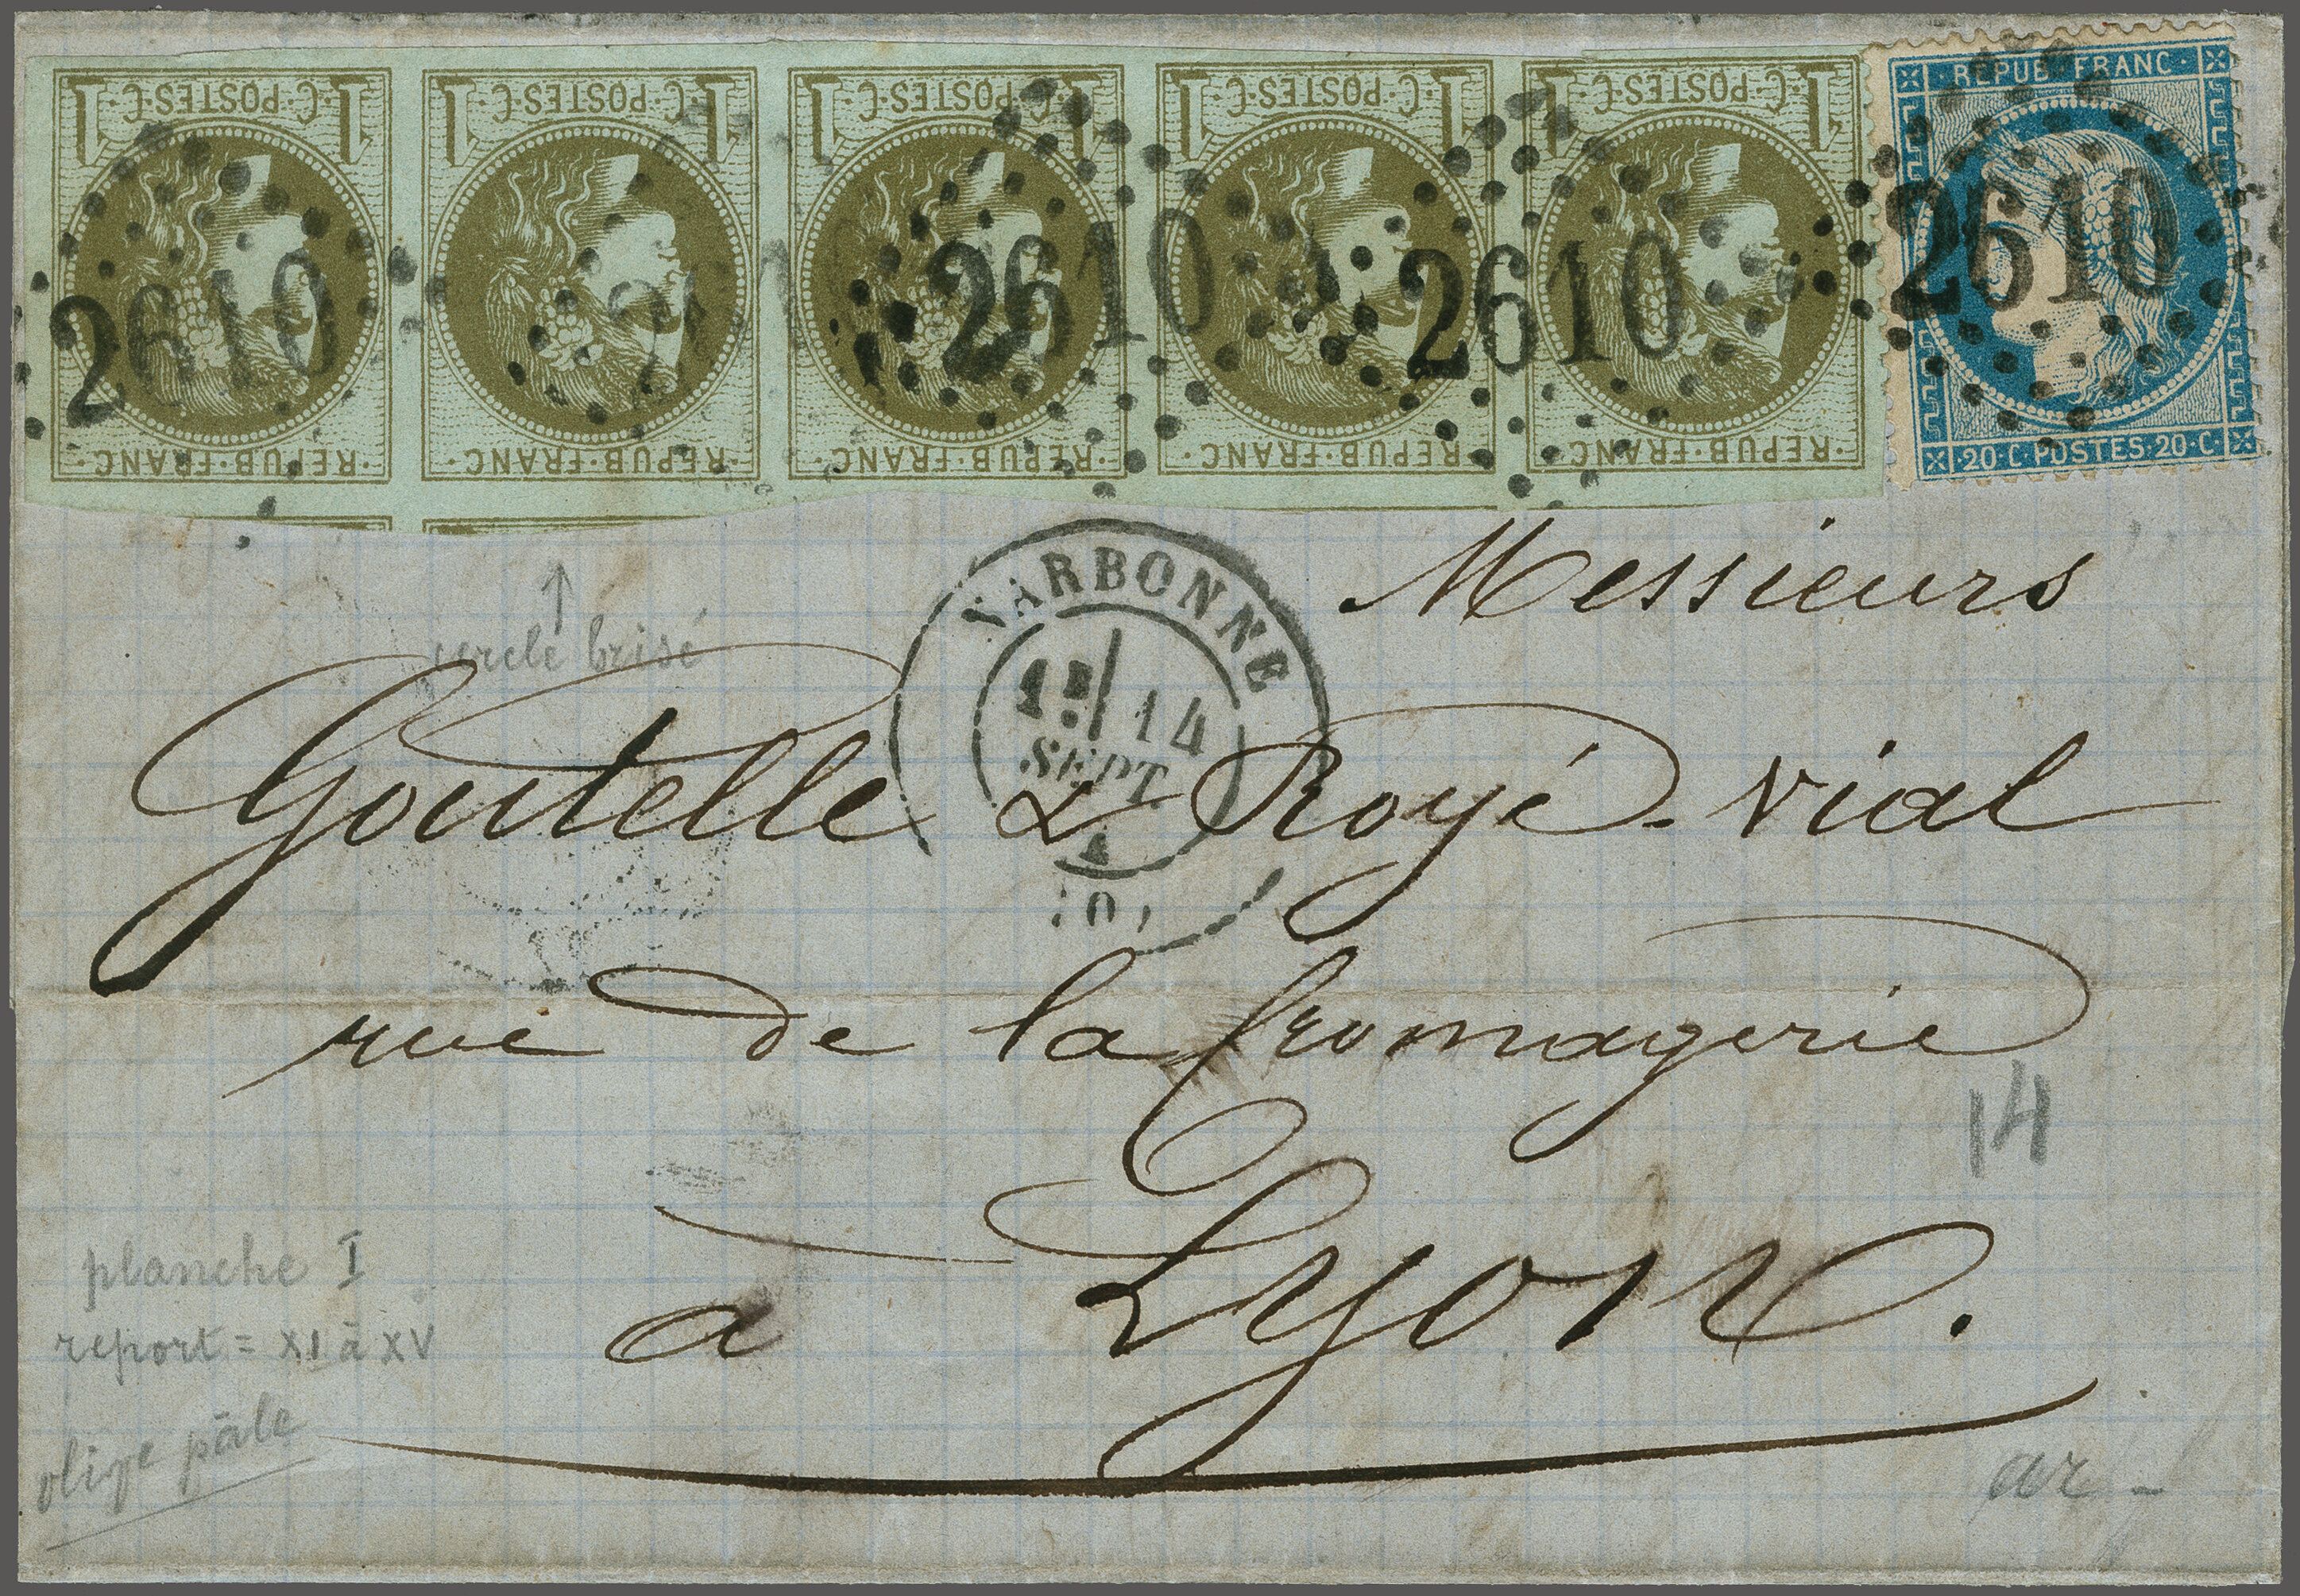 1·C·POSTES·C·1 1·C·POSTES·C·1 1·C·POSTES·C·1 1·C·POSTES·C·1 1·C·POSTES·C·1
·REPUB·FRANC· ·REPUB·FRANC· ·REPUB·FRANC· ·REPUB·FRANC· ·REPUB·FRANC·
· REPUB FRANC ·
·20·C·POSTES·20·C·
2610 2610 2610 2610
NARBONNE
14
SEPT.
Messieurs
cercle brisé
Goutelle & Royé-Vial
rue de la fromagerie
14
à Lyon.
planche I
report = XI à XV
olive pâle